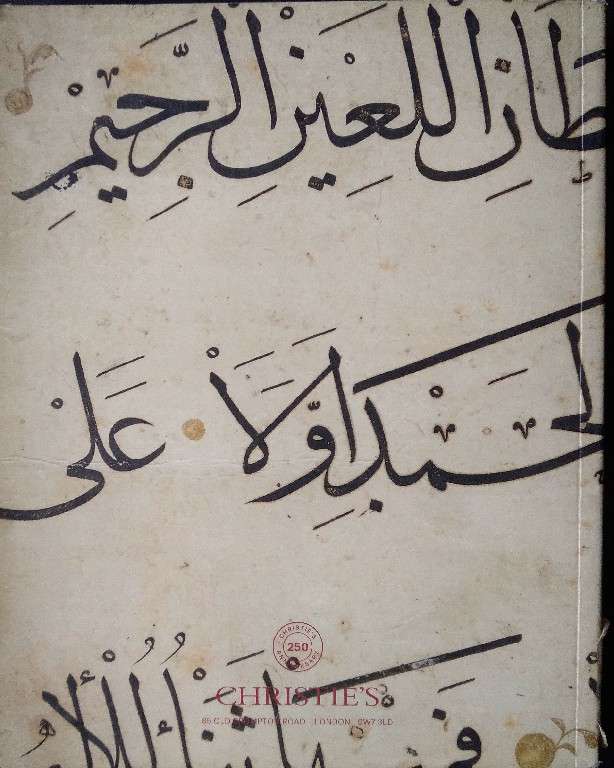 طَانِ اللَّعِيْنِ الرَّجِيْمِ
لحمد اوّلاً على
CHRISTIE'S
250
ANNIVERSARY
CHRISTIE'S
85 OLD BROMPTON ROAD LONDON SW7 3LD